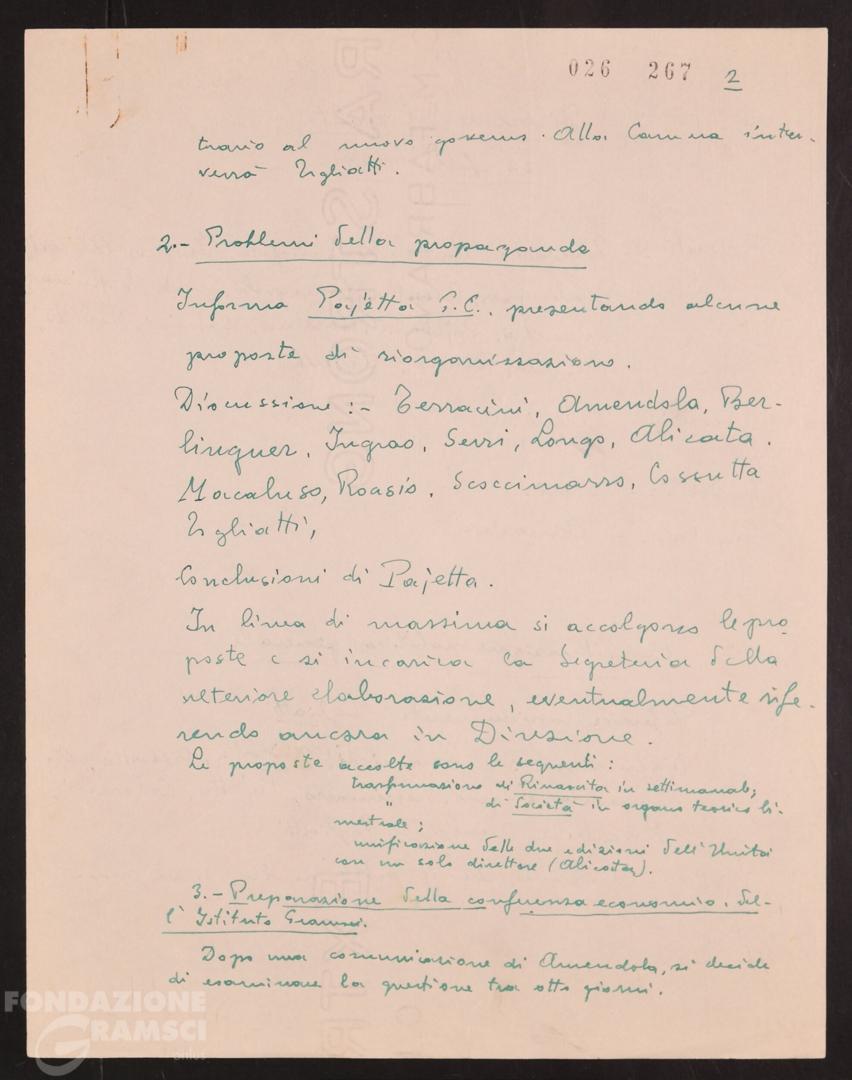 026 267 2
trario al nuovo governo. Alla Camera inter-
verrà Togliatti.
2.- Problemi della propaganda
Informa Pajetta G.C., presentando alcune
proposte di riorganizzazione.
Discussione:- Terracini, Amendola, Ber-
linguer, Ingrao, Sereni, Longo, Alicata,
Macaluso, Roasio, Scoccimarro, Cossutta
Togliatti,
Conclusioni di Pajetta.
In linea di massima si accolgono le pro-
poste e si incarica la Segreteria della
ulteriore elaborazione, eventualmente rife-
rendo ancora in Direzione.
Le proposte accolte sono le seguenti:
trasformazione di Rinascita in settimanale;
" di Società in organo teorico bi-
mestrale;
unificazione delle due edizioni dell'Unità
con un solo direttore (Alicata).
3.- Preparazione della conferenza economic. del-
l'Istituto Gramsci.
Dopo una comunicazione di Amendola, si decide
di esaminare la questione tra otto giorni.
FONDAZIONE
GRAMSCI